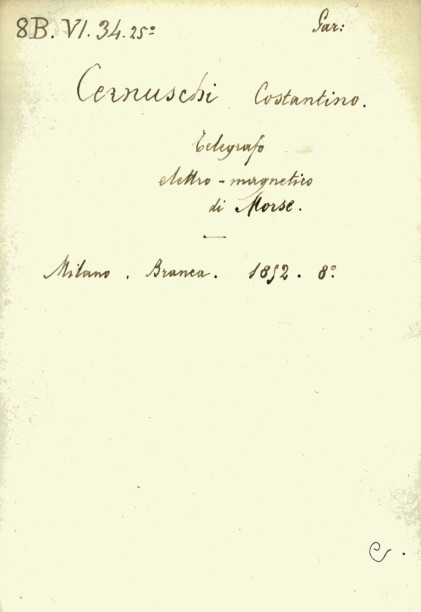 8B. VI. 34. 25º Gar:
Cernuschi Costantino.
Telegrafo
elettro-magnetico
di Morse.
Milano. Branca. 1852. 8º